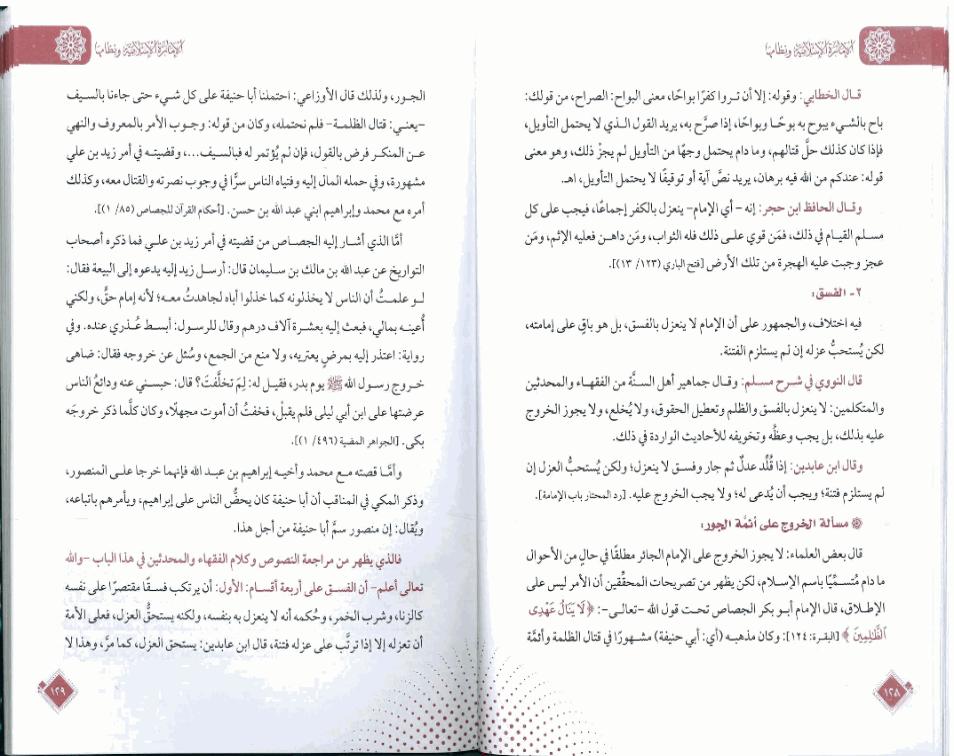 الإمارة الإسلامية ونظامها
قال الخطابي: وقوله: إلا أن تروا كفرًا بواحًا، معنى البواح: الصراح، من قولك:
باح بالشيء يبوح به بوحًا وبواحًا، إذا صرَّح به، يريد القول الذي لا يحتمل التأويل،
فإذا كان كذلك حلَّ قتالهم، وما دام يحتمل وجهًا من التأويل لم يجز ذلك، وهو معنى
قوله: عندكم من الله فيه برهان، يريد نصَّ آية أو توقيفًا لا يحتمل التأويل، اهـ.
وقال الحافظ ابن حجر: إنه - أي الإمام- ينعزل بالكفر إجماعًا، فيجب على كل
مسلم القيام في ذلك، فمَن قوي على ذلك فله الثواب، ومَن داهن فعليه الإثم، ومَن
عجز وجبت عليه الهجرة من تلك الأرض [فتح الباري (١٢٣/ ١٣)].
٢- الفسق:
فيه اختلاف، والجمهور على أن الإمام لا ينعزل بالفسق، بل هو باقٍ على إمامته،
لكن يُستحبُّ عزله إن لم يستلزم الفتنة.
قال النووي في شرح مسلم: وقال جماهير أهل السنَّة من الفقهاء والمحدثين
والمتكلمين: لا ينعزل بالفسق والظلم وتعطيل الحقوق، ولا يُخلع، ولا يجوز الخروج
عليه بذلك، بل يجب وعظُه وتخويفه للأحاديث الواردة في ذلك.
وقال ابن عابدين: إذا قُلِّد عدلٌ ثم جار وفسق لا ينعزل؛ ولكن يُستحبُّ العزل إن
لم يستلزم فتنة؛ ويجب أن يُدعى له؛ ولا يجب الخروج عليه. [رد المحتار باب الإمامة].
مسألة الخروج على أئمَّة الجور:
قال بعض العلماء: لا يجوز الخروج على الإمام الجائر مطلقًا في حالٍ من الأحوال
ما دام مُتسمِّيًا باسم الإسلام، لكن يظهر من تصريحات المحقِّقين أن الأمر ليس على
الإطلاق، قال الإمام أبو بكر الجصاص تحت قول الله -تعالى-: ﴿لَا يَنَالُ عَهْدِى
ٱلظَّٰلِمِينَ﴾ [البقرة: ١٢٤]: وكان مذهبه (أي: أبي حنيفة) مشهورًا في قتال الظلمة وأئمَّة
١٢٨
الإمارة الإسلامية ونظامها
الجور، ولذلك قال الأوزاعي: احتملنا أبا حنيفة على كل شيء حتى جاءنا بالسيف
-يعني: قتال الظلمة- فلم نحتمله، وكان من قوله: وجوب الأمر بالمعروف والنهي
عن المنكر فرض بالقول، فإن لم يُؤتمر له فبالسيف...، وقضيته في أمر زيد بن علي
مشهورة، وفي حمله المال إليه وفتياه الناس سرًّا في وجوب نصرته والقتال معه، وكذلك
أمره مع محمد وإبراهيم ابني عبد الله بن حسن. [أحكام القرآن للجصاص (٨٥/ ١)].
أمَّا الذي أشار إليه الجصاص من قضيته في أمر زيد بن علي فما ذكره أصحاب
التواريخ عن عبد الله بن مالك بن سليمان قال: أرسل زيد إليه يدعوه إلى البيعة فقال:
لو علمتُ أن الناس لا يخذلونه كما خذلوا أباه لجاهدتُ معه؛ لأنه إمام حقٍّ، ولكني
أُعينه بمالي، فبعث إليه بعشرة آلاف درهم وقال للرسول: أبسط عُذري عنده. وفي
رواية: اعتذر إليه بمرضٍ يعتريه، ولا منع من الجمع، وسُئل عن خروجه فقال: ضاهى
خروج رسول الله ﷺ يوم بدر، فقيل له: لِمَ تخلَّفتَ؟ قال: حبسني عنه ودائعُ الناس
عرضتها على ابن أبي ليلى فلم يقبلْ، فخفتُ أن أموت مجهلًا، وكان كلَّما ذكر خروجَه
بكى. [الجواهر المضية (٤٩٦/ ١)].
وأمَّا قصته مع محمد وأخيه إبراهيم بن عبد الله فإنهما خرجا على المنصور،
وذكر المكي في المناقب أن أبا حنيفة كان يحضُّ الناس على إبراهيم، ويأمرهم باتباعه،
ويُقال: إن منصور سمَّ أبا حنيفة من أجل هذا.
فالذي يظهر من مراجعة النصوص وكلام الفقهاء والمحدثين في هذا الباب -والله
تعالى أعلم- أن الفسق على أربعة أقسام: الأول: أن يرتكب فسقًا مقتصرًا على نفسه
كالزنا، وشرب الخمر، وحُكمه أنه لا ينعزل به بنفسه، ولكنه يستحقُّ العزل، فعلى الأمة
أن تعزله إلا إذا ترتَّب على عزله فتنة، قال ابن عابدين: يستحق العزل، كما مرَّ، وهذا لا
١٢٩